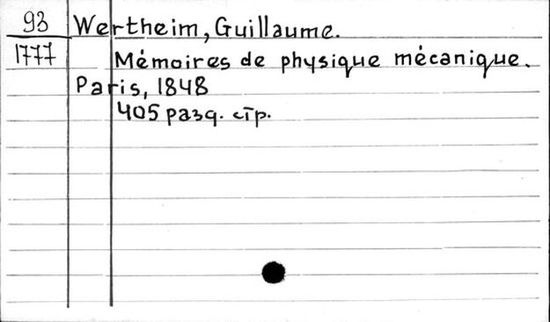 93 Wertheim, Guillaume.
1777 Mémoires de physique mécanique.
Paris, 1848
405 разд. стр.